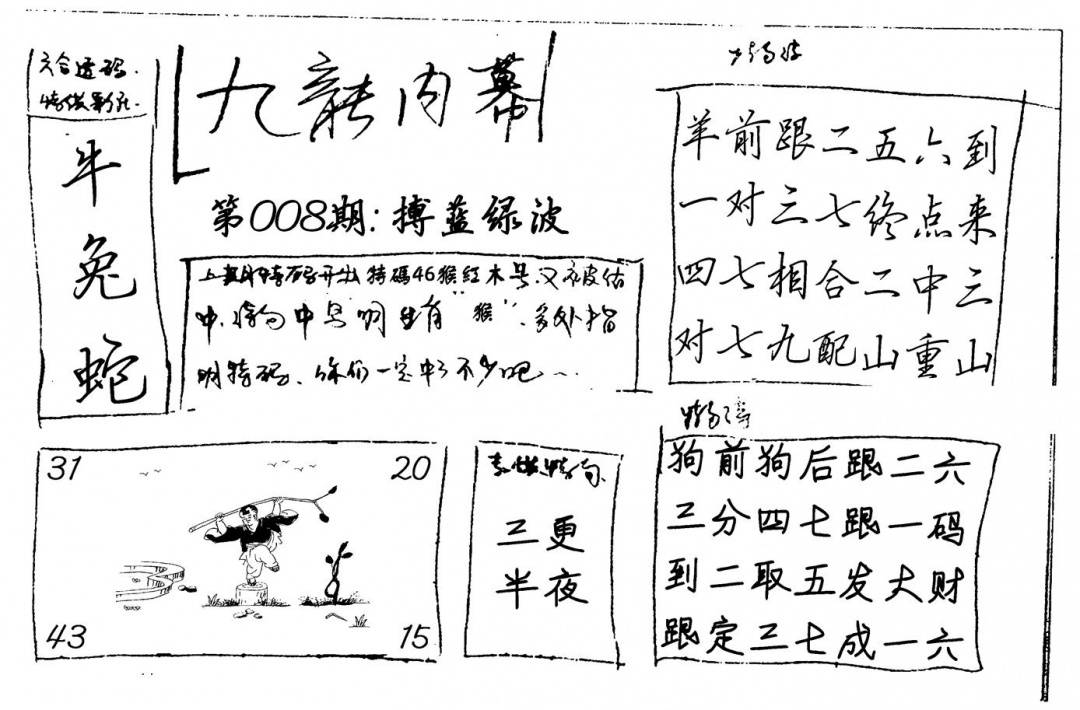 六合透码
特供彩孔
牛
兔
蛇
九龍内幕
第008期:搏蓝绿波
上期特码开出特碼46猴红木号又被估
中.中"猴".多处指
明特码.你们一定中了不少吧~
羊前跟二五六到
一对三七终点来
四七相合二中三
对七九配山重山
31
20
43
15
三更
半夜
狗前狗后跟二六
三分四七跟一码
到二取五发大财
跟定三七成一六